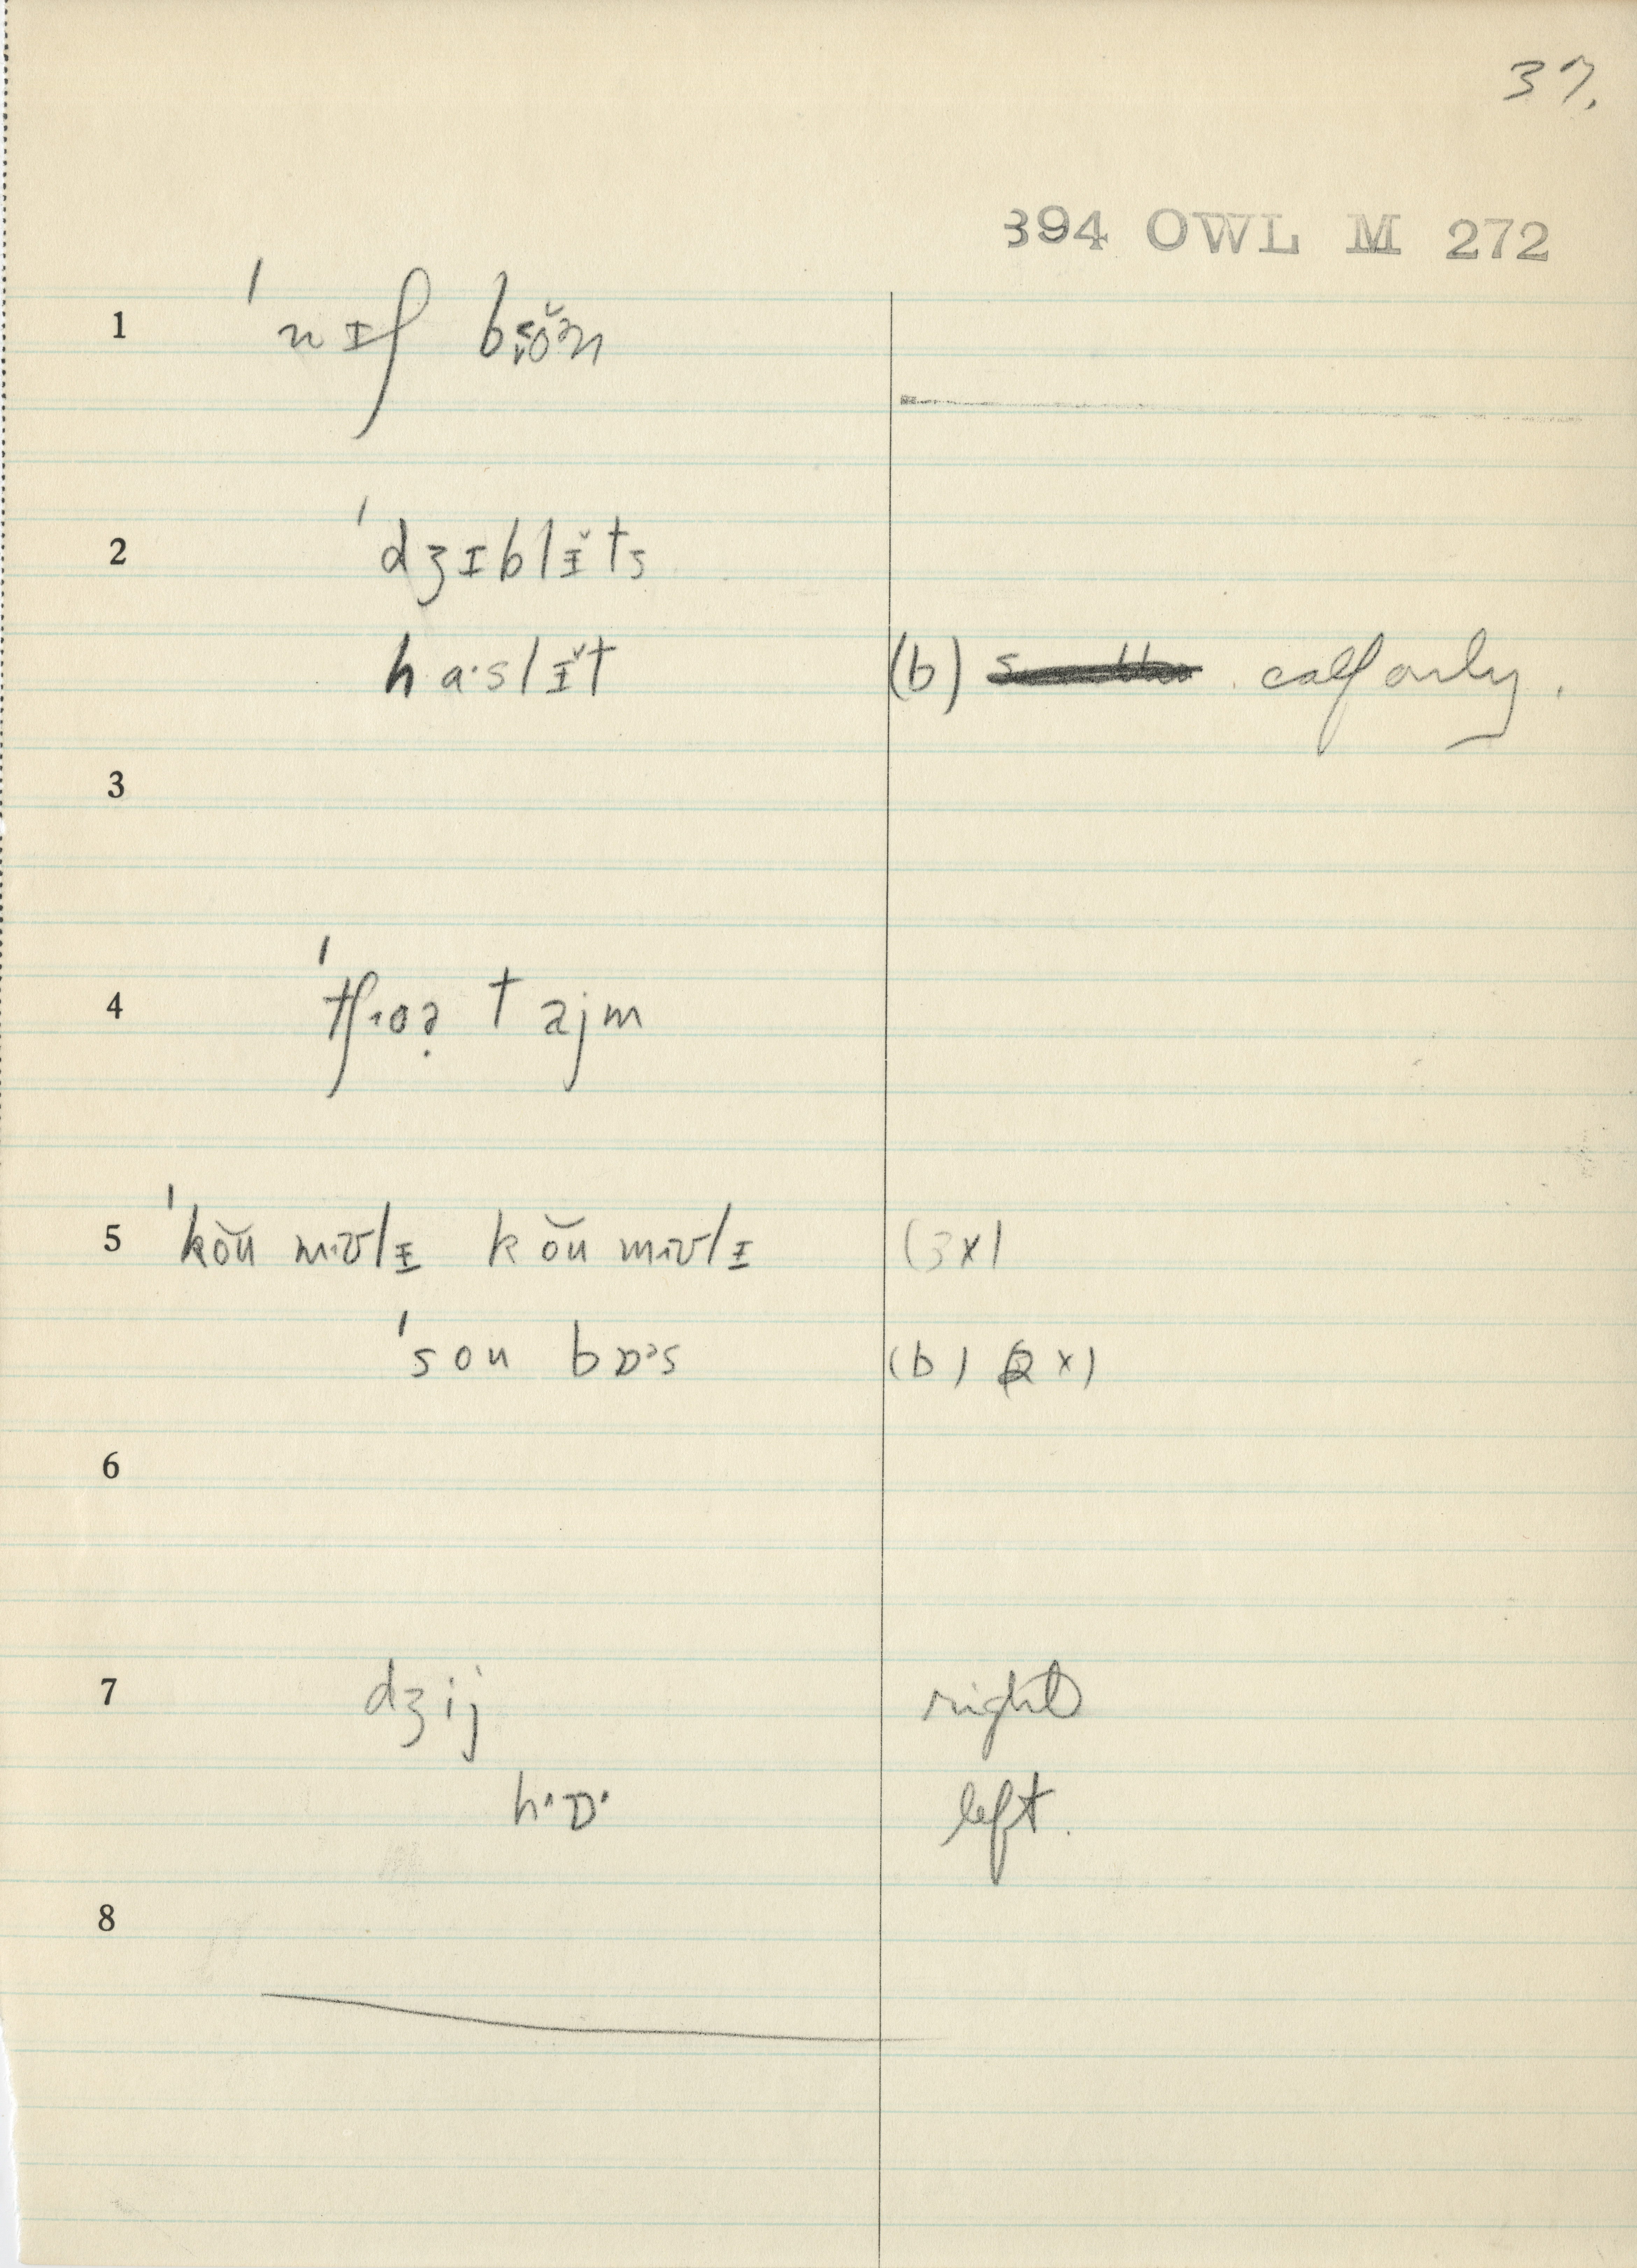 37.
394 OWL M 272
1 ˈnɪʃ
2 ˈdʒɪblɪ̆ts
haˑslɪ̆t (b) calf only.
3
4 ˈtʃoə̣ tajm
5 ˈkŏu kŏu (3x)
ˈsou bɒˑs (b) (2x)
6
7 dʒij right
hˑɒˑ left.
8